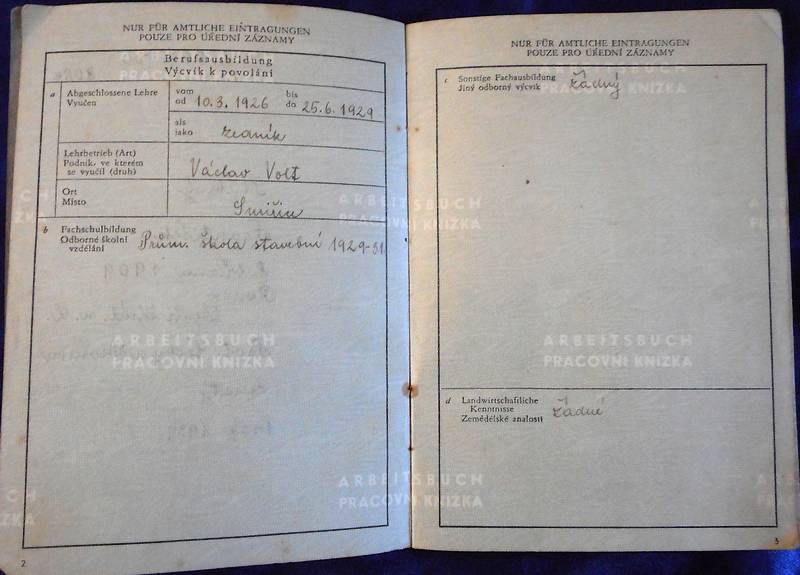 NUR FÜR AMTLICHE EINTRAGUNGEN
POUZE PRO ÚŘEDNÍ ZÁZNAMY
Berufsausbildung
Výcvik k povolání
a Abgeschlossene Lehre
Vyučen
vom
od 10.3.1926
bis
do 25.6.1929
als
jako zedník
Lehrbetrieb (Art)
Podnik, ve kterém
se vyučil (druh)
Václav Volt
Ort
Místo
Smiřice
b Fachschulbildung
Odborné školní
vzdělání
Prům. škola stavební 1929-31
ARBEITSBUCH
PRACOVNÍ KNÍŽKA
ARBEITSBUCH
PRACOVNÍ KNÍŽKA
ARBEITSBUCH
PRACOVNÍ KNÍŽKA
2
NUR FÜR AMTLICHE EINTRAGUNGEN
POUZE PRO ÚŘEDNÍ ZÁZNAMY
c Sonstige Fachausbildung
Jiný odborný výcvik
žádný
ARBEITSBUCH
PRACOVNÍ KNÍŽKA
d Landwirtschaftliche
Kenntnisse
Zemědělské znalosti
žádné
3